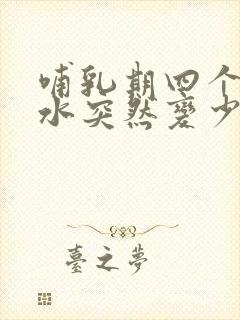 哺乳期四个
水突然变少
臺之夢